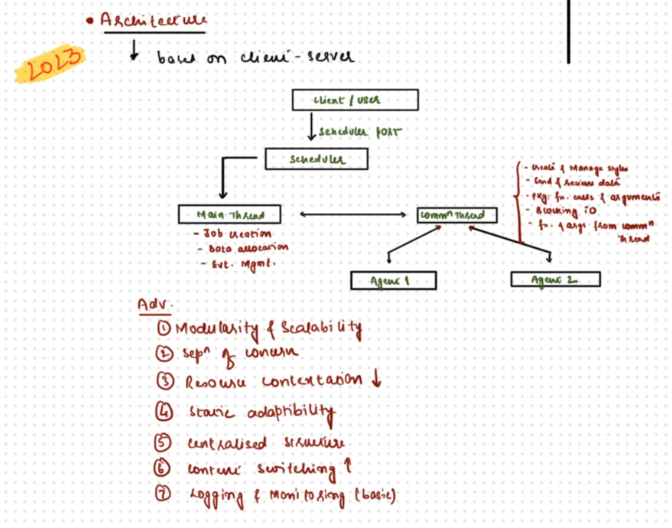 • Architecture
2023
based on client-server
Client / User
Scheduler port
Scheduler
Main Thread
- Job creation
- Data allocation
- Evt. Mgmt.
Commⁿ Thread
- Create & Manage
- Send & Recieve data
- Pkg. fn. calls & arguments
- Blocking IO
- fn. & args from commⁿ
Thread
Agent 1
Agent 2
Adv.
① Modularity & Scalability
② Sepⁿ of concern
③ Resource contentation ↓
④ Static adaptibility
⑤ centralised structure
⑥ context switching ↑
⑦ Logging & Monitosing (basic)